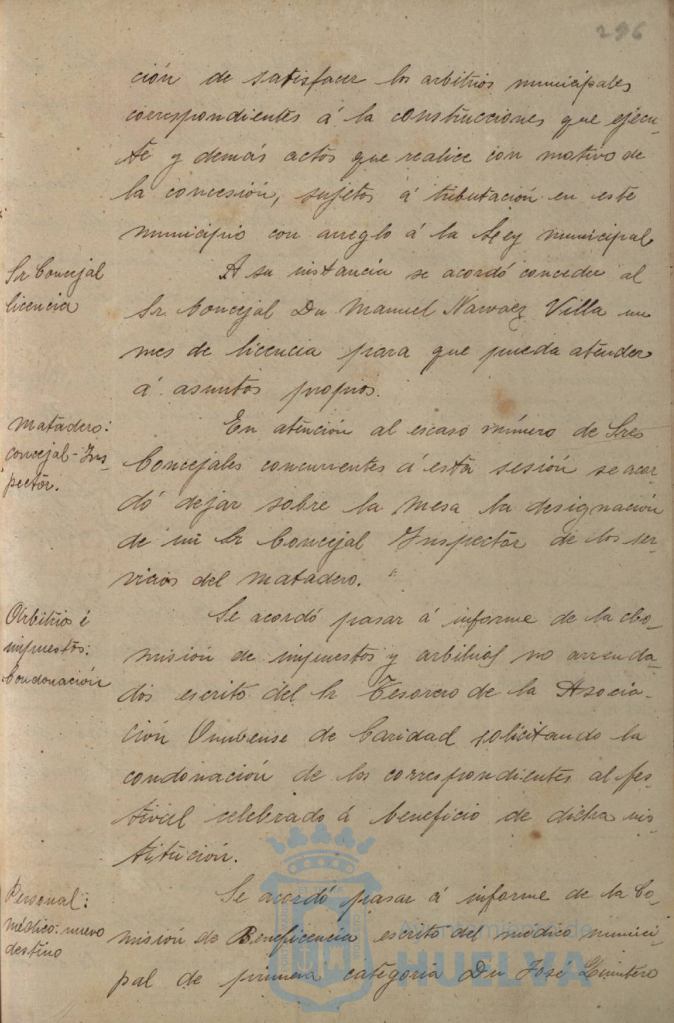 296
ción de satisfacer los arbitrios municipales
correspondientes á la construcciones que ejecu-
te y demás actos que realice con motivo de
la concesión, sujetos á tributación en este
municipio con arreglo á la Ley municipal
Sr Concejal
licencia
A su instancia se acordó conceder al
Sr. Concejal Dn Manuel Narvaez Villa un
mes de licencia para que pueda atender
á asuntos propios.
Matadero:
concejal-Ins-
pector.
En atención al escaso número de Sres
Concejales concurrentes á esta sesión se acor-
dó dejar sobre la mesa la designación
de un Sr Concejal Inspector de los ser-
vicios del matadero.
Arbitrios é
impuestos:
Condonación
Se acordó pasar á informe de la Co-
misión de impuestos y arbitrios no arrenda-
dos escrito del Sr Tesorero de la Asocia-
ción Onubense de Caridad solicitando la
condonación de los correspondientes al fes-
tival celebrado á beneficio de dicha ins-
titución.
Personal:
médico: nuevo
destino
Se acordó pasar á informe de la Co-
misión de Beneficencia escrito del médico munici-
pal de primera categoria Dn José Quintero
Ayuntamiento de
HUELVA